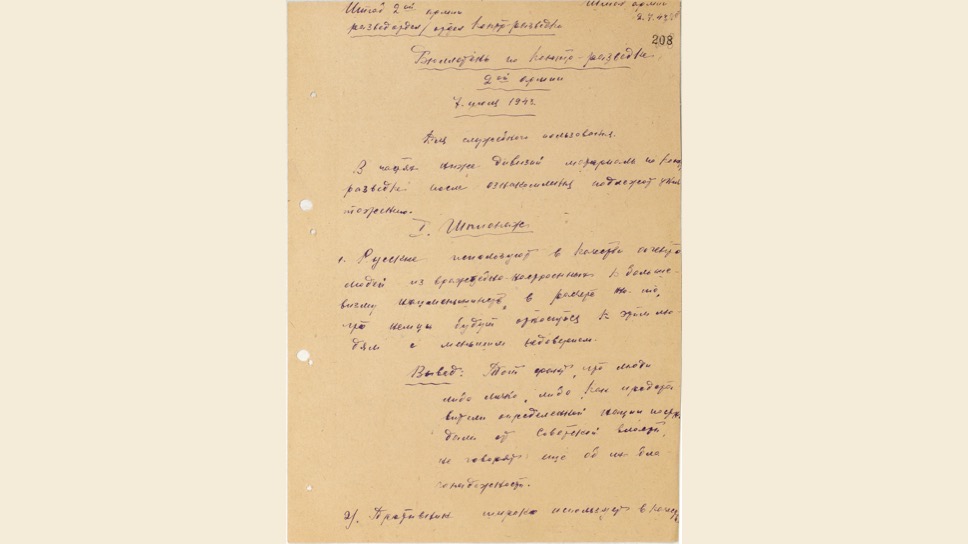 Штаб 2ой армии
Штаб армии
разведотдел/ отдел контр-разведки
2.7.43
208
Бюллетень по контр-разведке
2ой армии
7. июля 1943
Для служебного пользования.
В частях ниже дивизий материалы по контр
разведке после ознакомления подлежат унич
тожению.
I. Шпионаж.
1. Русские используют в качестве агентов
людей из враждебно-настроенных к больше-
визму нацменьшинств, в расчете на то,
что немцы будут относиться к этим лю-
дям с меньшим недоверием.
Вывод: Тот факт, что люди
либо лично, либо как предста
вители определенной нации постра
дали от Советской власти,
не говорит еще об их бла
гонадежности.
2). Противник широко использует в качес